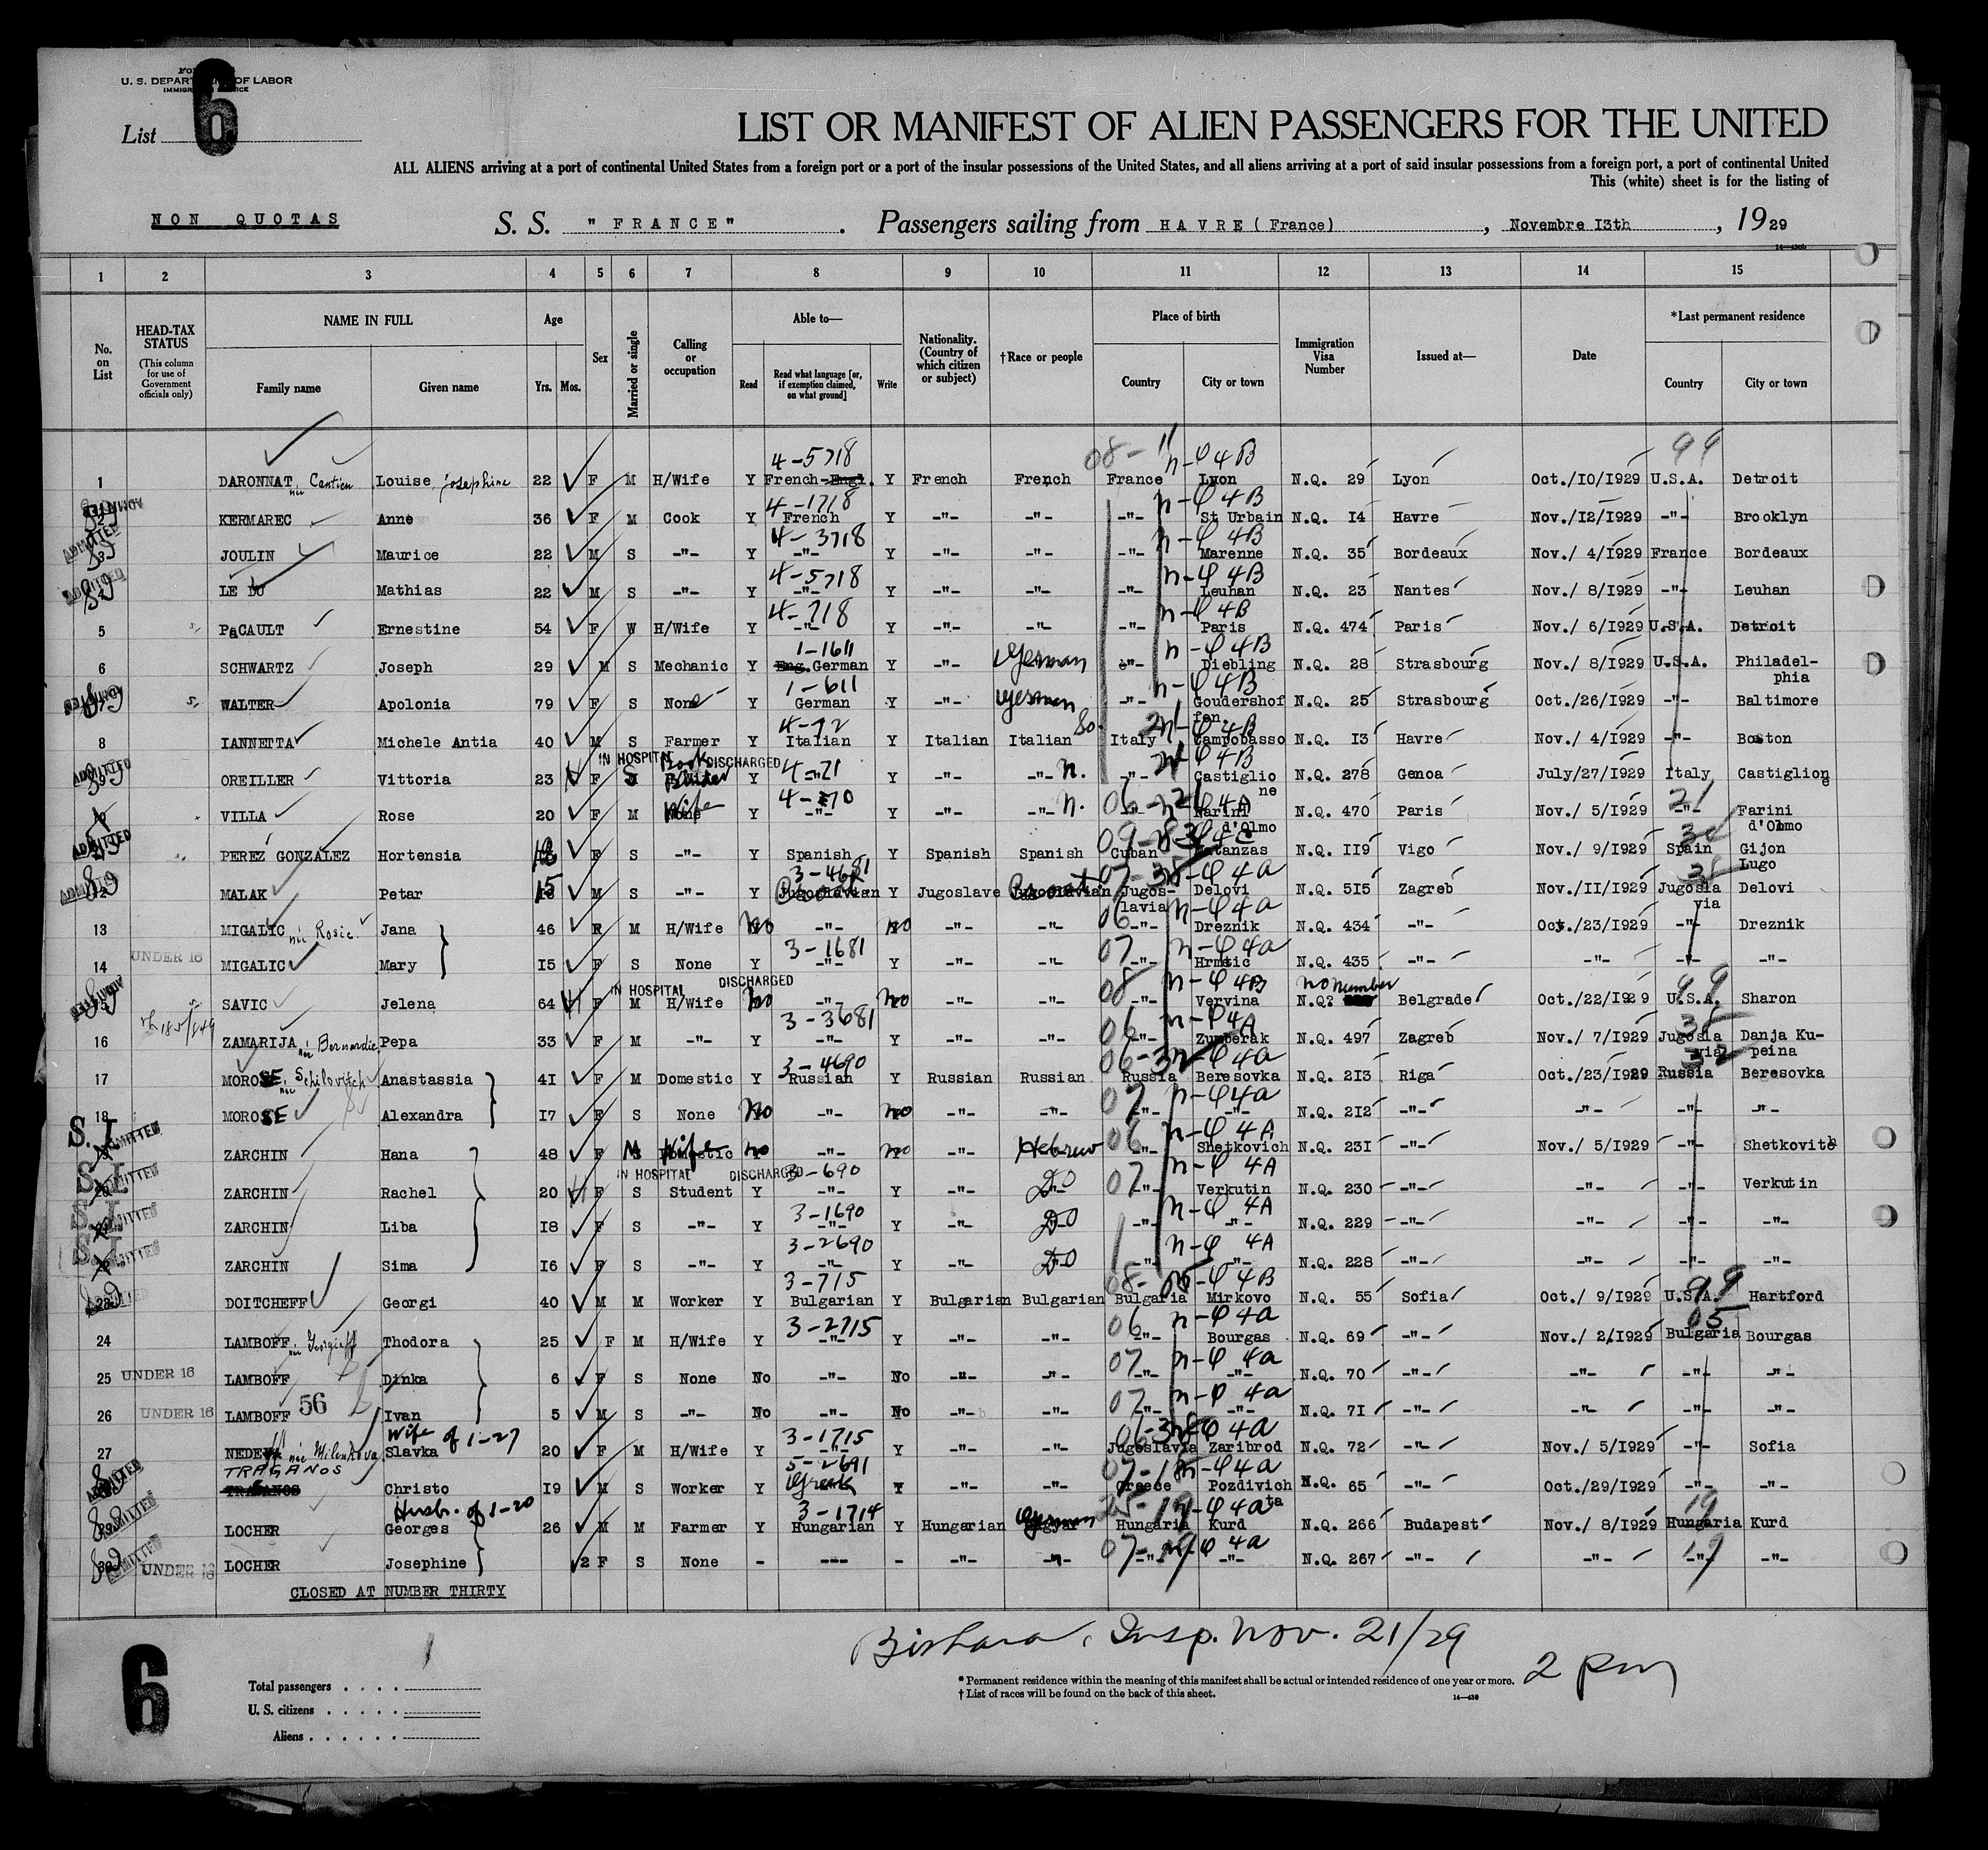 U. S. DEPARTMENT OF LABOR
List 6
LIST OR MANIFEST OF ALIEN PASSENGERS FOR THE UNITED
ALL ALIENS arriving at a port of continental United States from a foreign port or a port of the insular possessions of the United States, and all aliens arriving at a port of said insular possessions from a foreign port, a port of continental United
This (white) sheet is for the listing of
NON QUOTAS S. S. "FRANCE". Passengers sailing from HAVRE (France), Novembre I3th, 1929
1 2 3 4 5 6 7 8 9 10 11 12 13 14 15
No. on List
HEAD-TAX STATUS (This column for use of Government officials only)
NAME IN FULL Family name Given name
Age Yrs. Mos.
Sex
Married or single
Calling or occupation
Able to— Read Read what language [or, if exemption claimed, on what ground] Write
Nationality. (Country of which citizen or subject)
†Race or people
Place of birth Country City or town
Immigration Visa Number
Issued at—
Date
*Last permanent residence Country City or town
08-11 99
4-5718 n-φ 4B
1 DARONNAT née Louise, Josephine 22 F M H/Wife Y French-Engl. Y French French France Lyon N.Q. 29 Lyon Oct./I0/I929 U.S.A. Detroit
4-1718 n-φ 4B
KERMAREC Anne 36 F M Cook Y French Y -"- -"- -"- St Urbain N.Q. I4 Havre Nov./I2/I929 -"- Brooklyn
ADMITTED 4-3718 n-φ 4B
JOULIN Maurice 22 M S -"- Y -"- Y -"- -"- -"- Marenne N.Q. 35 Bordeaux Nov./ 4/I929 France Bordeaux
ADMITTED 4-5718 n-φ 4B
LE DU Mathias 22 M S -"- Y -"- Y -"- -"- -"- Leuhan N.Q. 23 Nantes Nov./ 8/I929 -"- Leuhan
4-718 n-φ 4B
5 PaCAULT Ernestine 54 F W H/Wife Y -"- Y -"- -"- -"- Paris N.Q. 474 Paris Nov./ 6/I929 U.S.A. Detroit
1-1611 n-φ 4B
6 SCHWARTZ Joseph 29 M S Mechanic Y Eng. German Y -"- German -"- Diebling N.Q. 28 Strasbourg Nov./ 8/I929 U.S.A. Philadel-phia
1-611 n-φ 4B
WALTER Apolonia 79 F S None Y German Y -"- German -"- Goudershoffen N.Q. 25 Strasbourg Oct./26/I929 -"- Baltimore
4-72 n-φ 4B
8 IANNETTA Michele Antia 40 M S Farmer Y Italian Y Italian Italian So. Italy Campobasso N.Q. I3 Havre Nov./ 4/I929 -"- Boston
ADMITTED IN HOSPITAL DISCHARGED 4-71 φ 4B
OREILLER Vittoria 23 F S Book Y -"- Y -"- -"- n. -"- Castiglione N.Q. 278 Genoa July/27/I929 Italy Castiglione
06-21 φ 4A 21
VILLA Rose 20 F M Wife Y -"- Y -"- -"- n. -"- Farini d'Olmo N.Q. 470 Paris Nov./ 5/I929 -"- Farini d'Olmo
ADMITTED
PEREZ GONZALEZ Hortensia F S -"- Y Spanish Y Spanish Spanish Cuban Matanzas N.Q. II9 Vigo Nov./ 9/I929 Spain Gijon Lugo
ADMITTED 3-4681 φ 4a
12 MALAK Petar 15 M S -"- Y Jugoslavian Y Jugoslave Croat Jugos-lavia Delovi N.Q. 5I5 Zagreb Nov./II/I929 Jugoslavia Delovi
06 n-φ 4a
13 MIGALIC née Rosic Jana 46 F M H/Wife No -"- No -"- -"- -"- Dreznik N.Q. 434 -"- Oct./23/I929 -"- Dreznik
UNDER 16 3-1681 07 n-φ 4a
14 MIGALIC Mary I5 F S None Y -"- Y -"- -"- -"- Hrmtic N.Q. 435 -"- -"- -"- -"-
IN HOSPITAL DISCHARGED 08 n-φ 4B no number 99
15 SAVIC Jelena 64 F M H/Wife No -"- No -"- -"- -"- Vervina N.Q? Belgrade Oct./22/I929 U.S.A. Sharon
3-3681 06 n-φ 4A 35
16 ZAMARIJA née Bernardic Pepa 33 F M -"- Y -"- Y -"- -"- -"- Zumberak N.Q. 497 Zagreb Nov./ 7/I929 Jugoslavia Danja Ku-peina
3-4690 06-32 φ 4a 32
17 MOROSE née Schilovitch Anastassia 4I F M Domestic Y Russian Y Russian Russian Russia Beresovka N.Q. 2I3 Riga Oct./23/I929 Russia Beresovka
07 n-φ 4a
18 MOROSE Alexandra I7 F S None No -"- No -"- -"- -"- -"- N.Q. 2I2 -"- -"- -"- -"-
S.I. ADMITTED 06 n-φ 4A
ZARCHIN Hana 48 F M Wife No -"- No -"- Hebrew -"- Shetkovich N.Q. 23I -"- Nov./ 5/I929 -"- Shetkovitch
S.I. ADMITTED IN HOSPITAL DISCHARGED 3-690 07 n-φ 4A
ZARCHIN Rachel 20 F S Student Y -"- Y -"- DO -"- Verkutin N.Q. 230 -"- -"- -"- Verkutin
S.I. ADMITTED 3-1690 n-φ 4A
ZARCHIN Liba I8 F S -"- Y -"- Y -"- DO -"- -"- N.Q. 229 -"- -"- -"- -"-
S.I. ADMITTED 3-2690 n-φ 4A
ZARCHIN Sima I6 F S -"- Y -"- Y -"- DO -"- -"- N.Q. 228 -"- -"- -"- -"-
3-715 08-05 φ 4B 99
23 DOITCHEFF Georgi 40 M M Worker Y Bulgarian Y Bulgarian Bulgarian Bulgaria Mirkovo N.Q. 55 Sofia Oct./ 9/I929 U.S.A. Hartford
3-2715 06 n-φ 4a 05
24 LAMBOFF née Georgieff Thodora 25 F M H/Wife Y -"- Y -"- -"- -"- Bourgas N.Q. 69 -"- Nov./ 2/I929 Bulgaria Bourgas
07 n-φ 4a
25 UNDER 16 LAMBOFF Dinka 6 F S None No -"- No -"- -"- -"- -"- N.Q. 70 -"- -"- -"- -"-
07 n-φ 4a
26 UNDER 16 LAMBOFF 56 Ivan 5 M S -"- No -"- No -"- -"- -"- -"- N.Q. 7I -"- -"- -"- -"-
Wife of 1-27 3-1715 φ 4a
27 née Milenkova Slavka 20 F M H/Wife Y -"- Y -"- -"- Jugoslavia Zaribrod N.Q. 72 -"- Nov./ 5/I929 -"- Sofia
ADMITTED TRAGANOS 5-2691 φ 4a
Christo I9 M S Worker Y Greek Y -"- -"- Greece Pozdivichta N.Q. 65 -"- Oct./29/I929 -"- -"-
ADMITTED Husb. of 1-20 3-1714 φ 4a 19
LOCHER Georges 26 M M Farmer Y Hungarian Y Hungarian German Hungaria Kurd N.Q. 266 Budapest Nov./ 8/I929 Hungaria Kurd
ADMITTED 07-19 φ 4a 19
30 UNDER 16 LOCHER Josephine 2 F S None - --- - -"- -"- -"- -"- N.Q. 267 -"- -"- -"- -"-
CLOSED AT NUMBER THIRTY
Bishara, Insp. Nov. 21/29
2 pm
6
Total passengers . . . .
U. S. citizens . . . . .
Aliens . . . . . .
* Permanent residence within the meaning of this manifest shall be actual or intended residence of one year or more.
† List of races will be found on the back of this sheet.
14—430